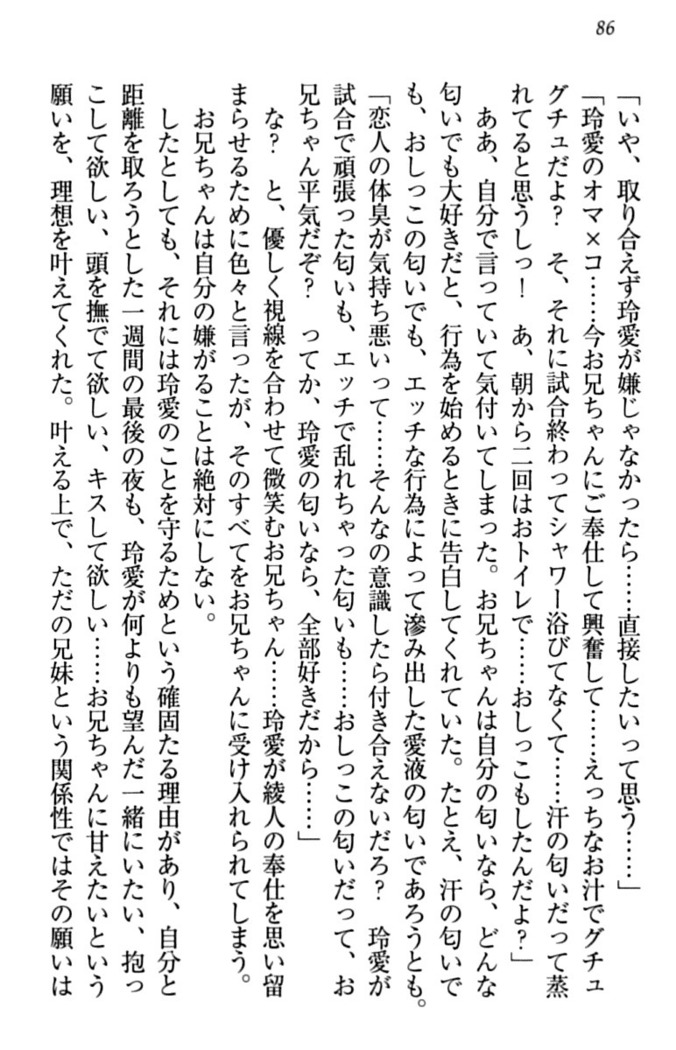 86
「いや、取り合えず玲愛が嫌じゃなかったら……直接したいって思う……」
「玲愛のオマ×コ……今お兄ちゃんにご奉仕して興奮して……えっちなお汁でグチュ
グチュだよ？　そ、それに試合終わってシャワー浴びてなくて……汗の匂いだって蒸
れてると思うしっ！　あ、朝から二回はおトイレで……おしっこもしたんだよ？」
ああ、自分で言っていて気付いてしまった。お兄ちゃんは自分の匂いなら、どんな
匂いでも大好きだと、行為を始めるときに告白してくれていた。たとえ、汗の匂いで
も、おしっこの匂いでも、エッチな行為によって滲み出した愛液の匂いであろうとも。
「恋人の体臭が気持ち悪いって……そんなの意識したら付き合えないだろ？　玲愛が
試合で頑張った匂いも、エッチで乱れちゃった匂いも……おしっこの匂いだって、お
兄ちゃん平気だぞ？　ってか、玲愛の匂いなら、全部好きだから……」
な？　と、優しく視線を合わせて微笑むお兄ちゃん……玲愛が綾人の奉仕を思い留
まらせるために色々と言ったが、そのすべてをお兄ちゃんに受け入れられてしまう。
お兄ちゃんは自分の嫌がることは絶対にしない。
したとしても、それには玲愛のことを守るためという確固たる理由があり、自分と
距離を取ろうとした一週間の最後の夜も、玲愛が何よりも望んだ一緒にいたい、抱っ
こして欲しい、頭を撫でて欲しい、キスして欲しい……お兄ちゃんに甘えたいという
願いを、理想を叶えてくれた。叶える上で、ただの兄妹という関係性ではその願いは